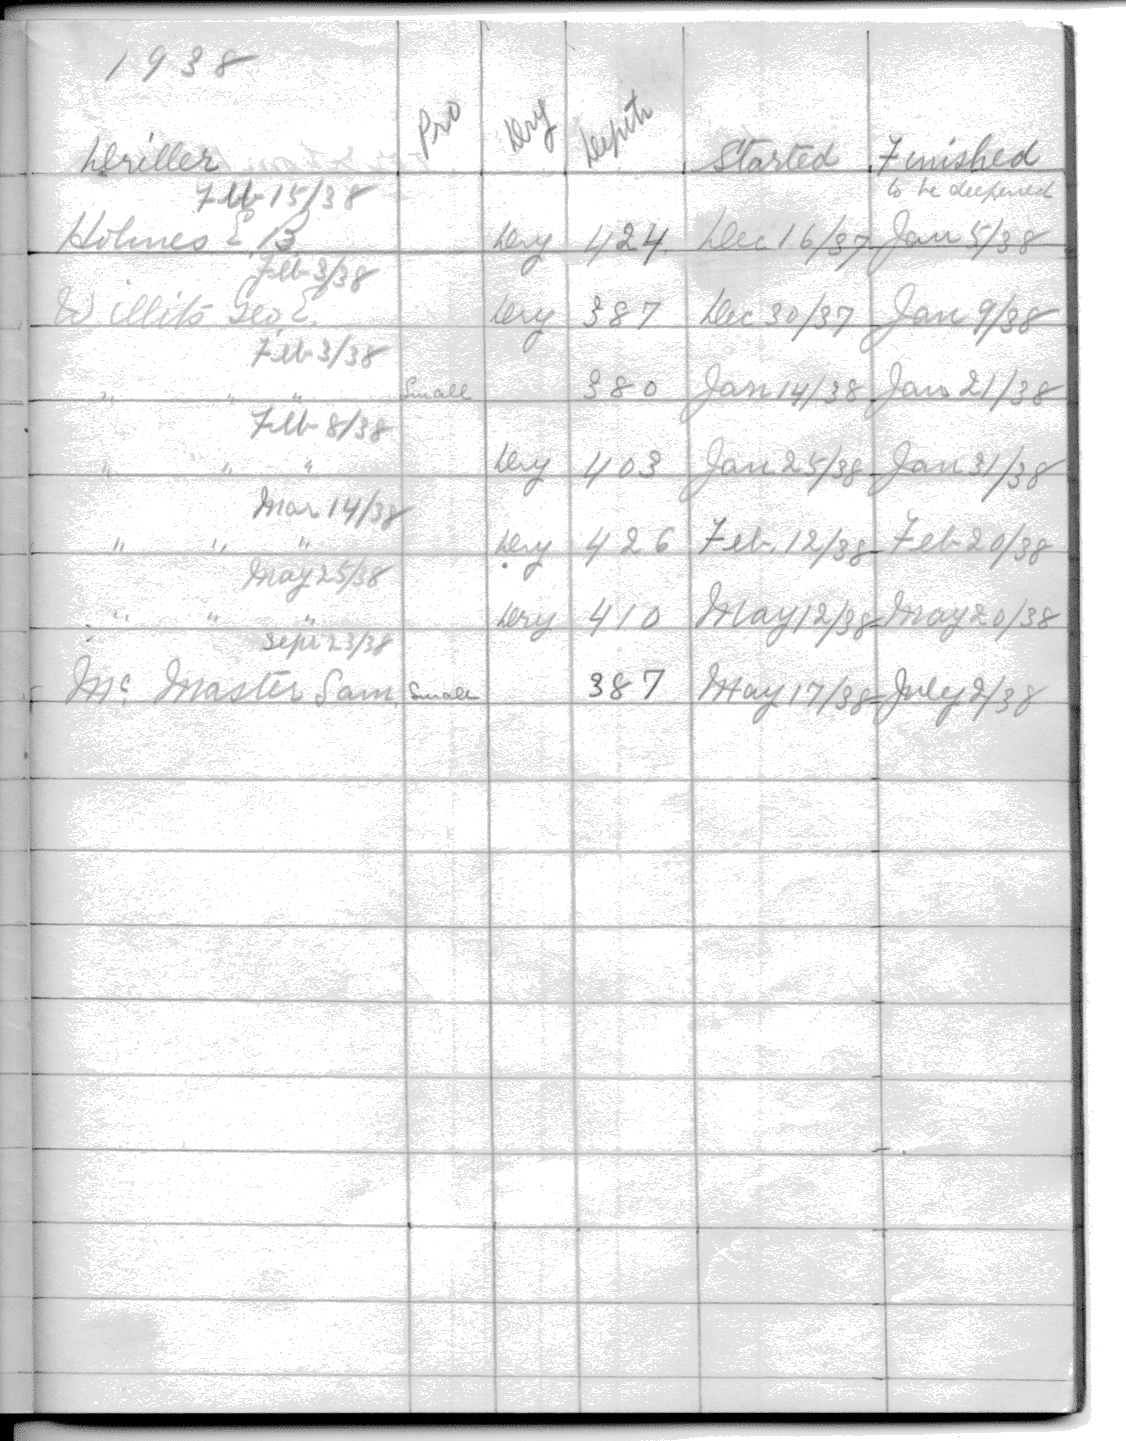 1938
Driller Pro Dry Depth Started Finished
Feb 15/38 to be deepened
Holmes E B Dry 424 Dec 16/37 Jan 5/38
Feb 3/38
Willits Geo E. Dry 387 Dec 30/37 Jan 9/38
Feb 3/38
" " " Small 380 Jan 14/38 Jan 21/38
Feb 8/38
" " " Dry 403 Jan 25/38 Jan 31/38
Mar 14/38
" " " Dry 426 Feb. 12/38 Feb 20/38
May 25/38
" " " Dry 410 May 12/38 May 20/38
Sept 23/38
Mc Master Sam. Small 387 May 17/38 July 2/38